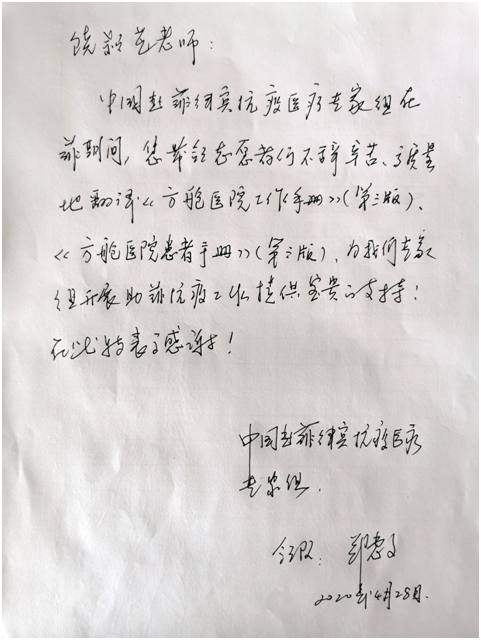 饶颖艺老师：
中国赴菲律宾抗疫医疗专家组在
菲期间，您带领志愿者们不辞辛苦、高质量
地翻译《方舱医院工作手册》（第三版）、
《方舱医院患者手册》（第三版），为我们专家
组开展助菲抗疫工作提供宝贵的支持！
在此特表示感谢！
中国赴菲律宾抗疫医疗
专家组.
领队：
2020年4月28日.